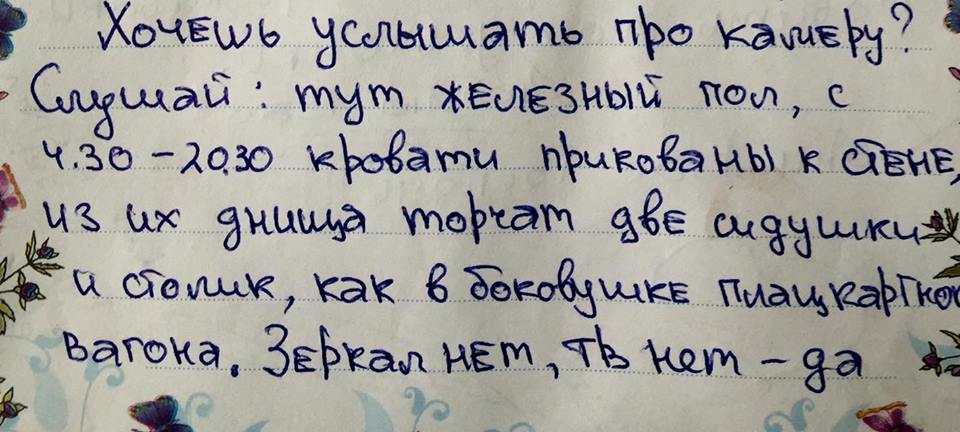 Хочешь услышать про камеру?
Слушай: тут железный пол, с
4.30 – 20.30 кровати прикованы к стене,
из их днища торчат две сидушки
и столик, как в боковушке плацкартно
вагона. Зеркал нет, ТВ нет – да